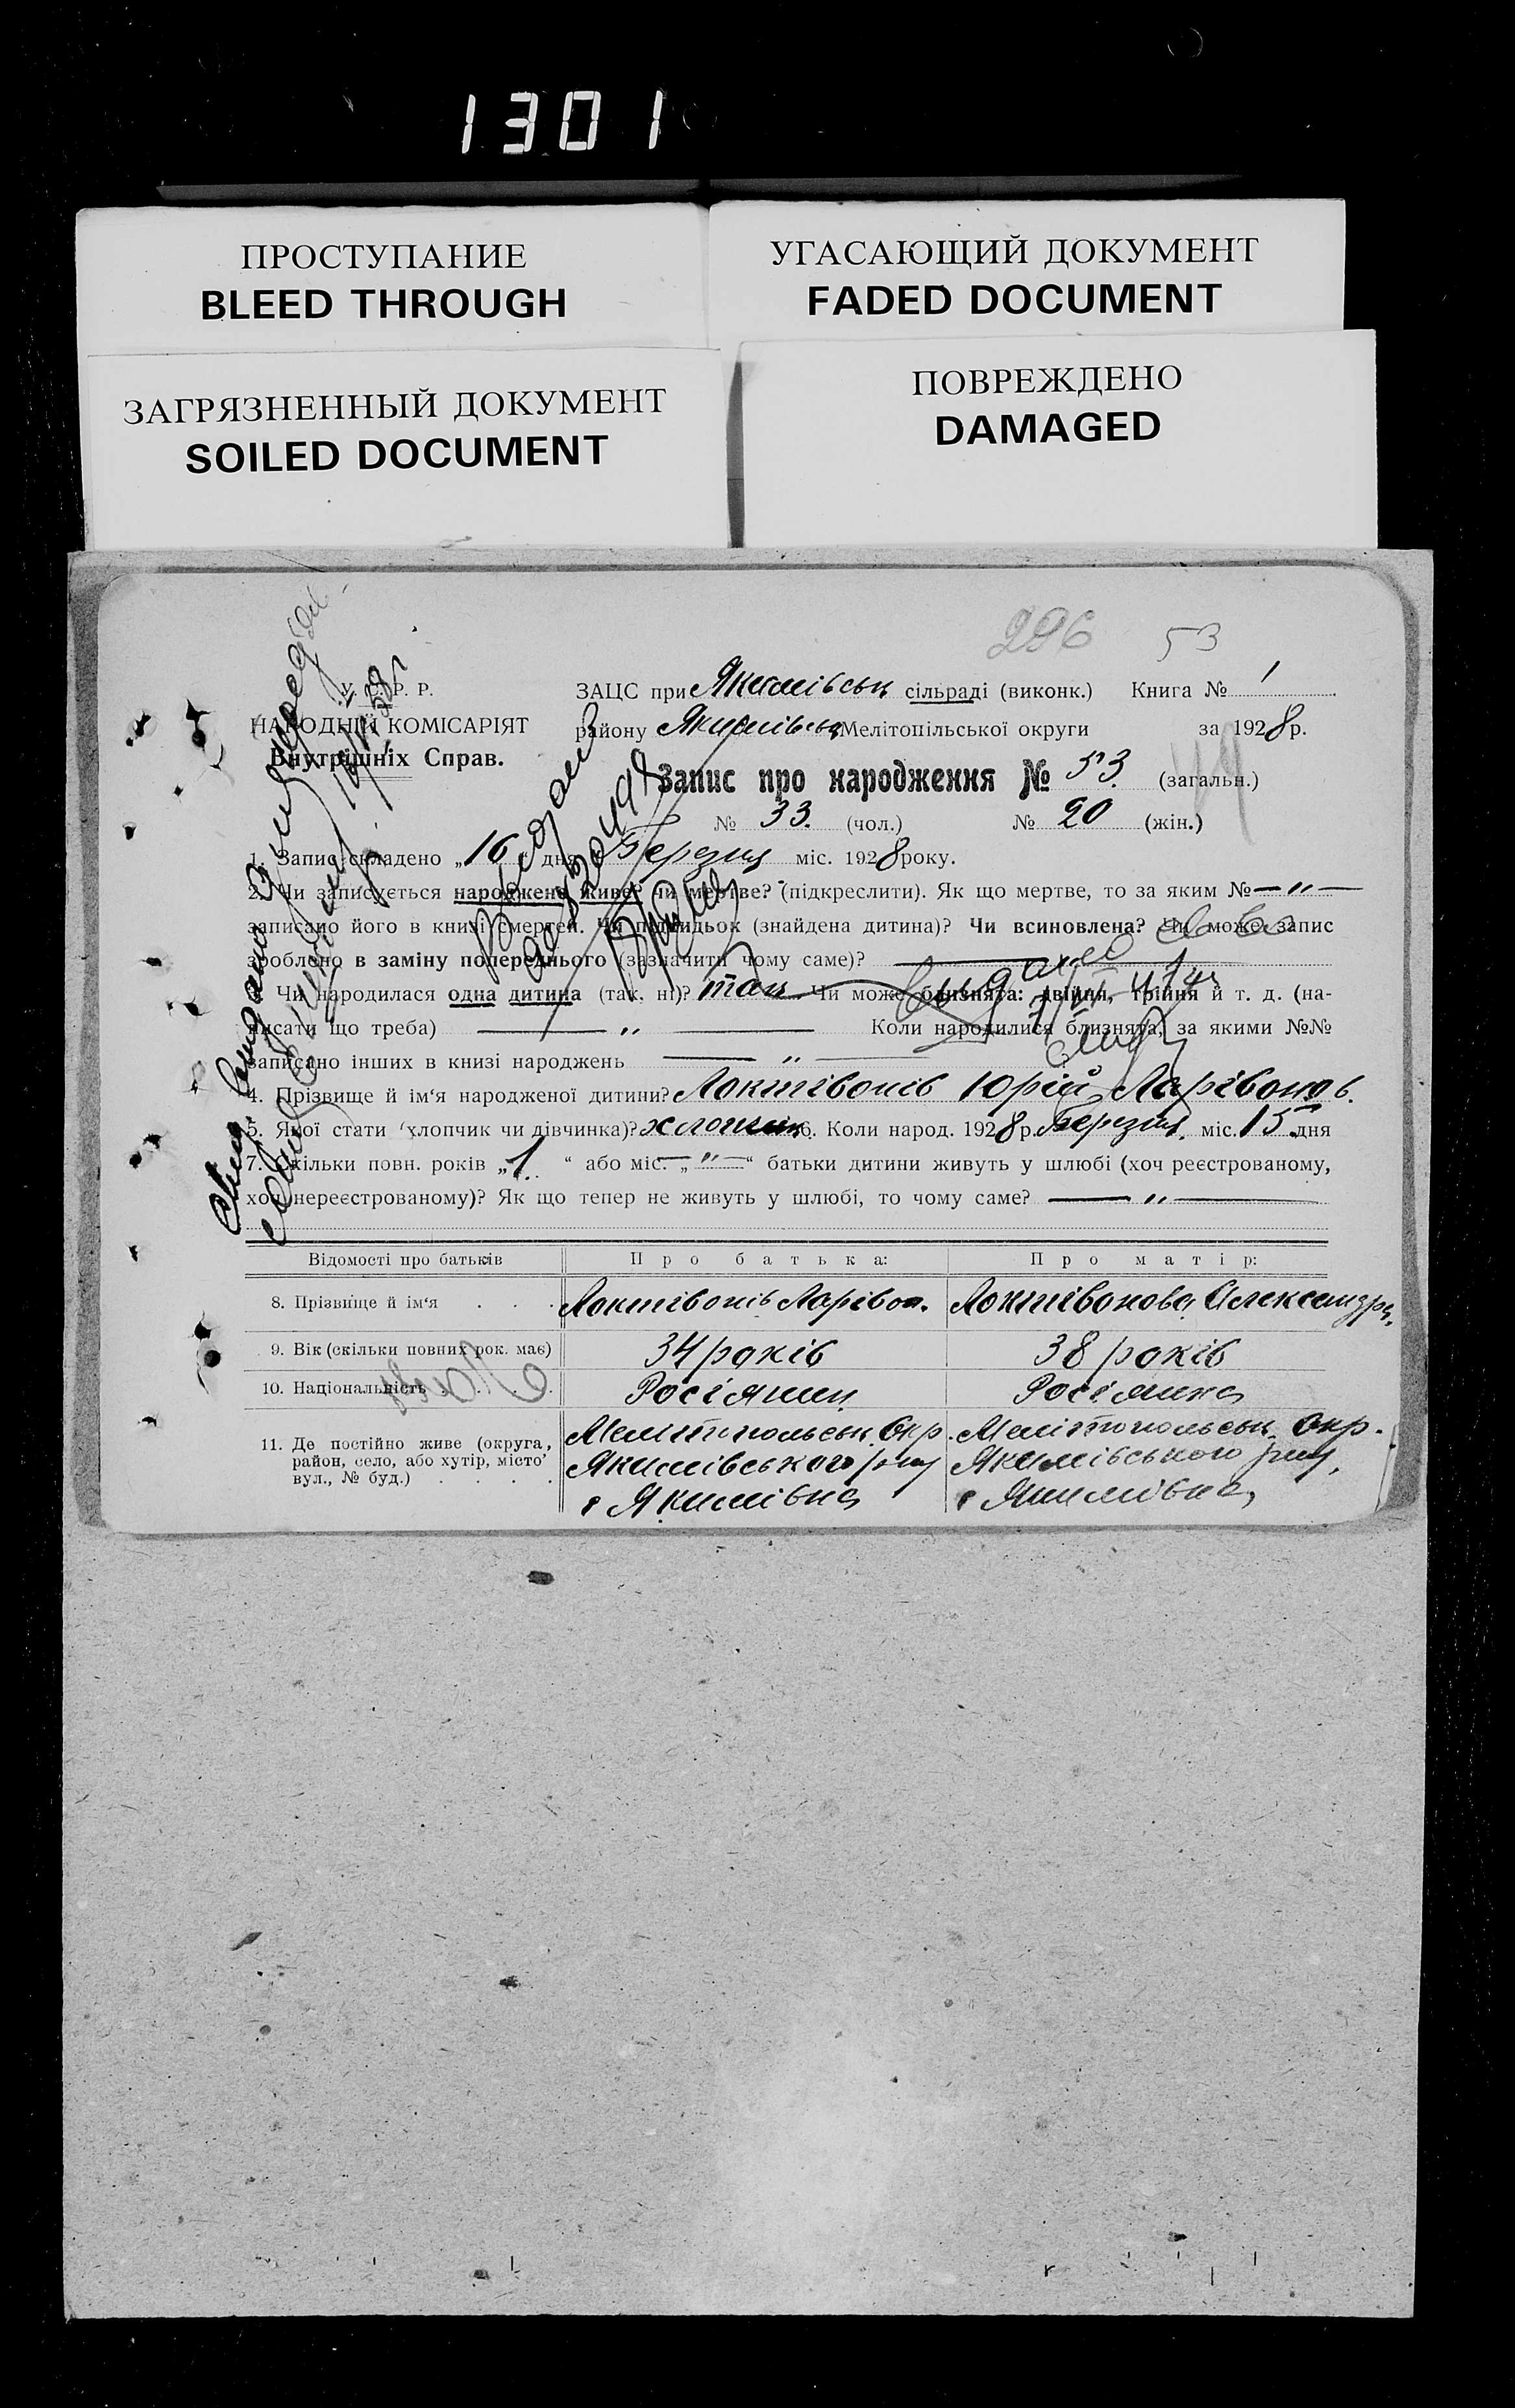 1301
ПРОСТУПАНИЕ
BLEED THROUGH
УГАСАЮЩИЙ ДОКУМЕНТ
FADED DOCUMENT
ЗАГРЯЗНЕННЫЙ ДОКУМЕНТ
SOILED DOCUMENT
ПОВРЕЖДЕНО
DAMAGED
296 53
У. С. Р. Р.
НАРОДНІЙ КОМІСАРІЯТ
Внутрішніх Справ.
ЗАЦС при Якимівськ сільраді (виконк.) Книга № 1
району Якимівськ Мелітопільської округи за 1928 р.
Запис про народження № 53. (загальн.)
№ 33. (чол.) № 20 (жін.)
1. Запис складено „16 дня Березня міс. 1928 року.
2. Чи записується народжене живе? чи мертве? (підкреслити). Як що мертве, то за яким № — „ —
записано його в книзі смертей. Чи підкидьок (знайдена дитина)? Чи всиновлена? Чи може запис
зроблено в заміну попереднього (зазначити чому саме)?
Чи народилася одна дитина (так, ні)? так Чи може близнята: двійня, трійня й т. д. (на-
писати що треба) — „ — Коли народилися близнята, за якими №№
записано інших в книзі народжень — „ —
4. Прізвище й ім‘я народженої дитини? Локтівонів Юрій Ларівонов.
5. Якої стати (хлопчик чи дівчинка)? хлопчик 6. Коли народ. 1928 р. Березня. міс. 15 дня
7. Скільки повн. років „1. “ або міс. „ — „ — “ батьки дитини живуть у шлюбі (хоч реєстрованому,
хоч нереєстрованому)? Як що тепер не живуть у шлюбі, то чому саме? — „ —
Відомості про батьків Про батька: Про матір:
8. Прізвище й ім‘я . . . Локтівонів Ларівон. Локтівонова Александра.
9. Вік (скільки повних рок. має) 34 років 38 років
10. Національність . . . . Росіянин Росіянка
11. Де постійно живе (округа, Мелітопольськ. Окр. Мелітопольськ. Окр.
район, село, або хутір, місто’ Якимівського р-ну Якимівського р-ну,
вул., № буд.) . . . . с Якимівка с Якимівка,